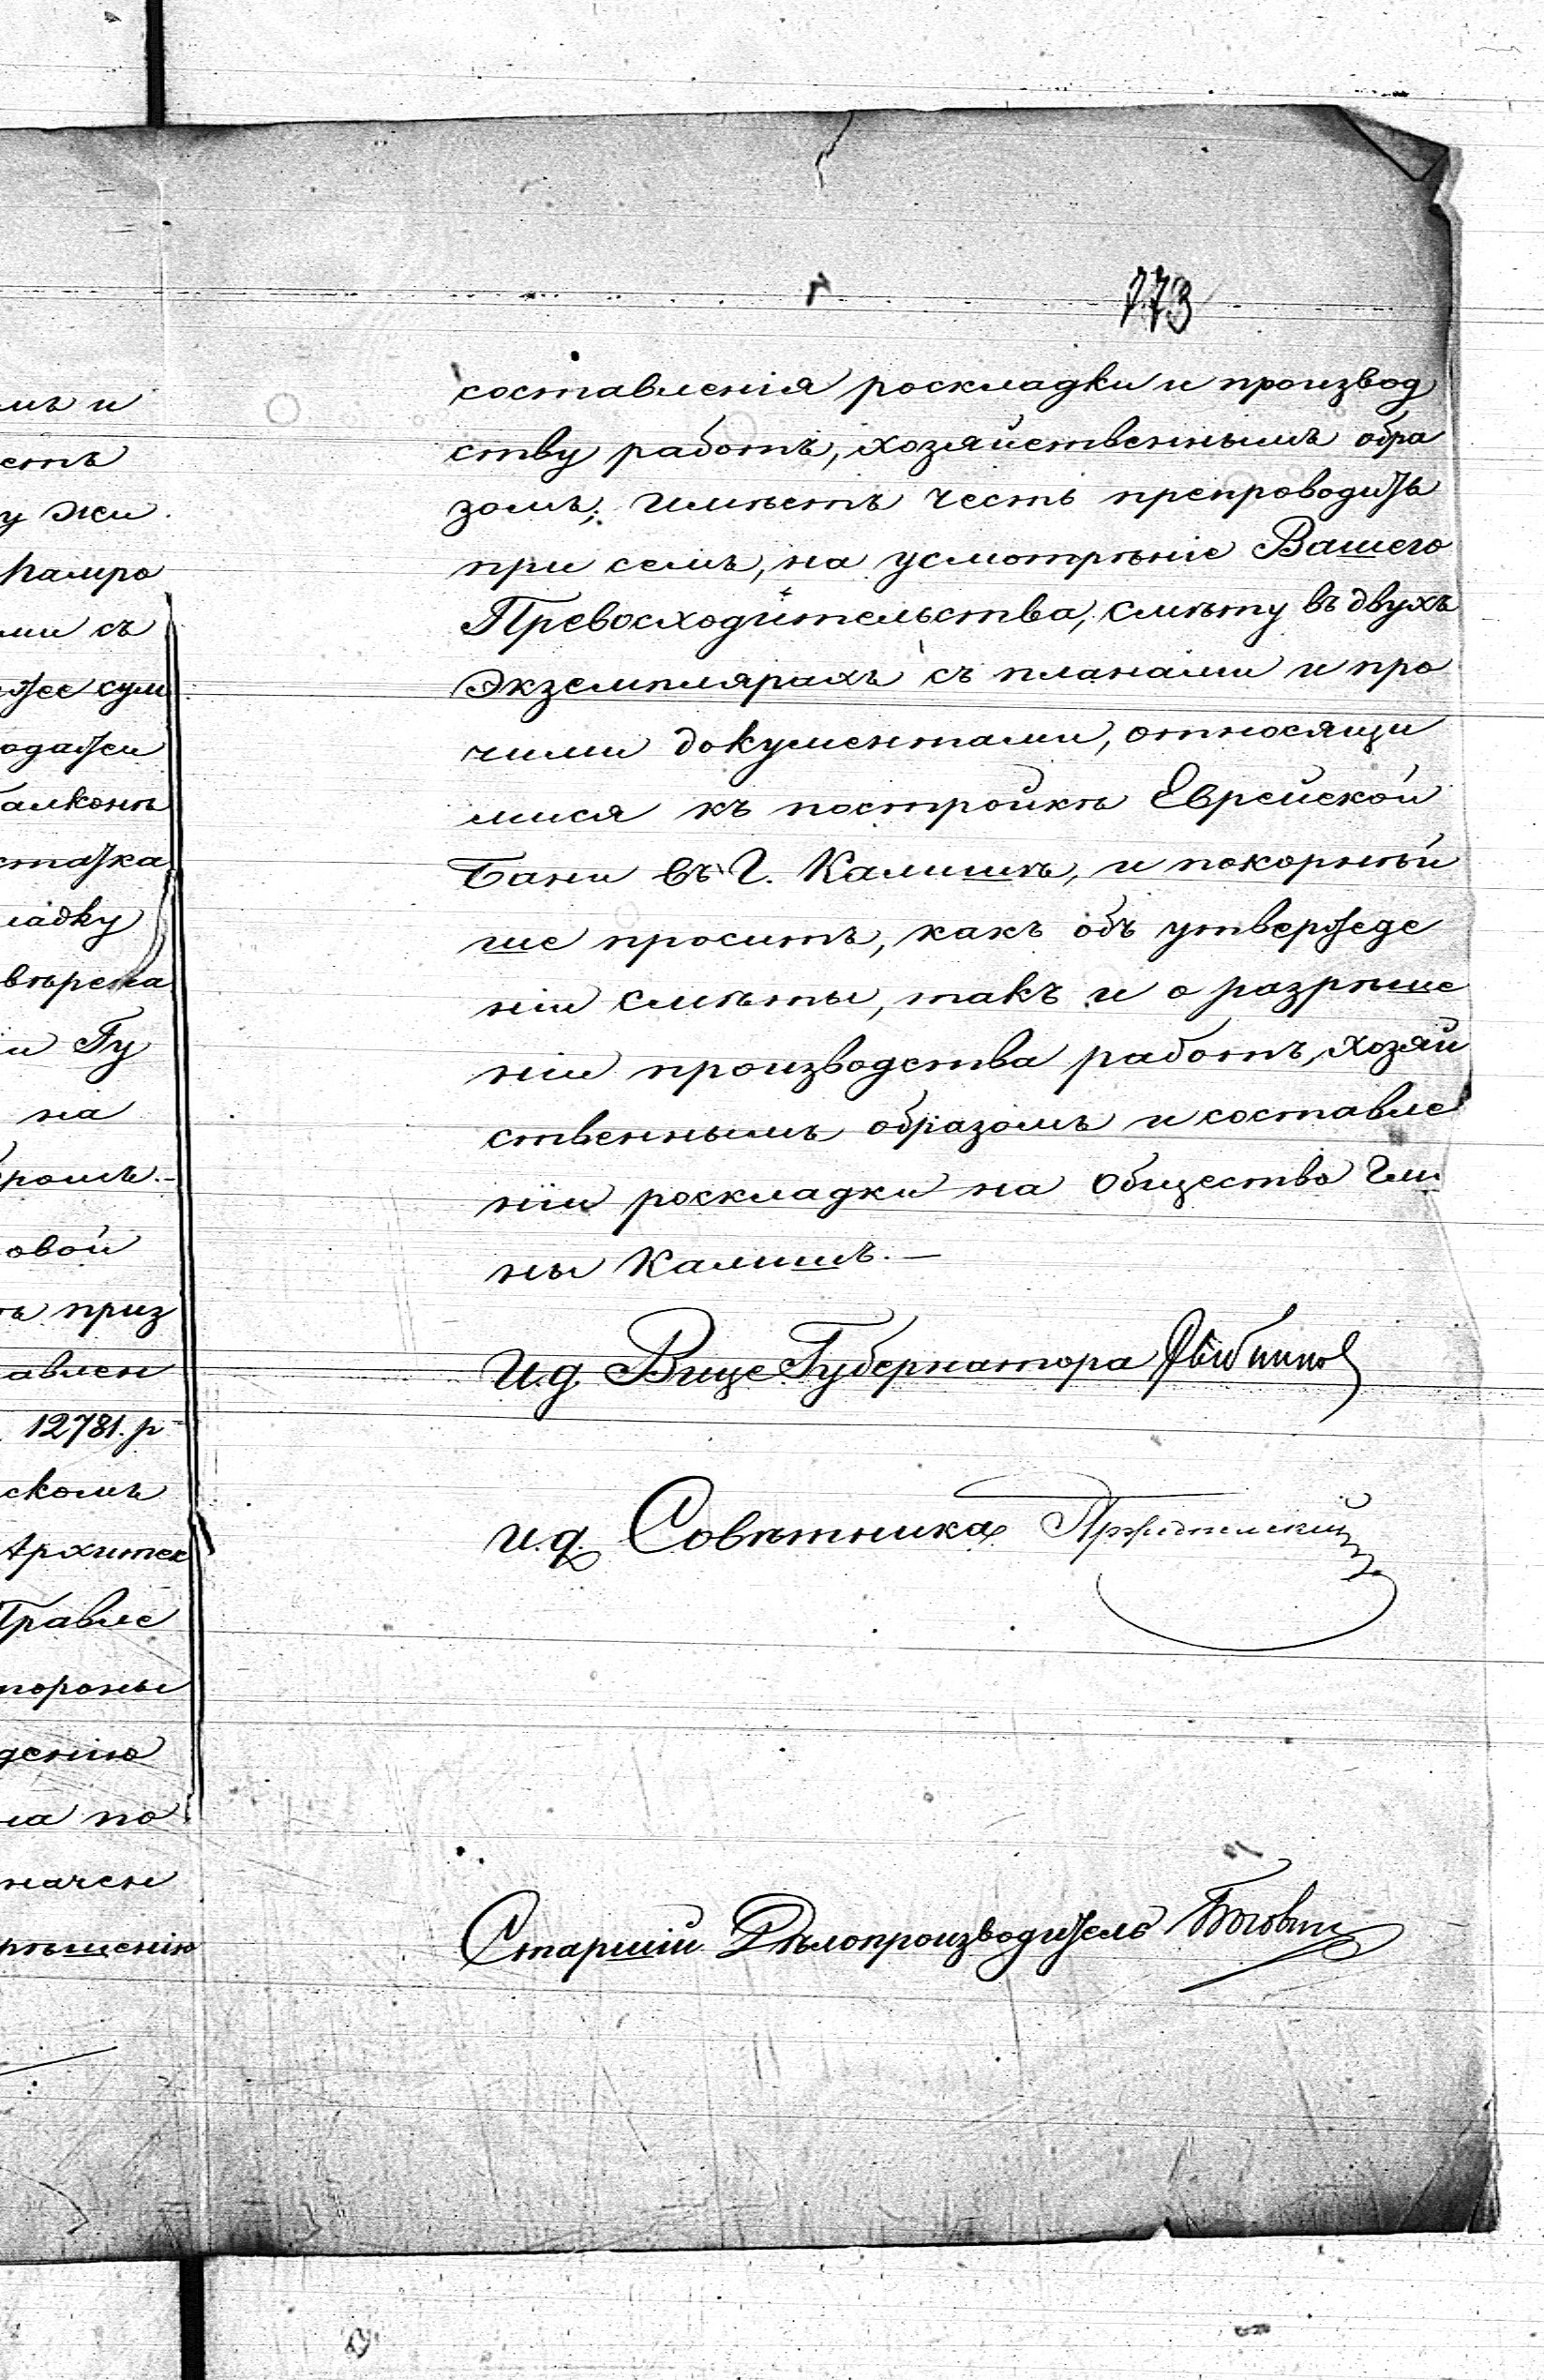 773
составленія роскладки и производ
ству работъ, хозяйственнымъ обра
зомъ, имѣетъ честь препроводить
при семъ, на усмотрѣніе Вашего
Превосходительства, смѣту въ двухъ
экземплярахъ съ планами и про
чими документами, относящи
мися къ постройкѣ Еврейской
Бани въ Г. Калишѣ, и покорнѣй
ше проситъ, какъ объ утвержде
ніи смѣты, такъ и о разрѣше
ніи производства работъ, хозяй
ственнымъ образомъ и составле
ніи роскладки на общество Гми
ны Калишъ.—
И.д. Вице Губернатора Рыбников
И.д. Совѣтника
Старшій Дѣлопроизводитель
мъ и
етъ
у жи
ми съ
жее сум
одатей
балконѣ
статка
ладку
ввѣрена
и Гу
на
ромъ.-
овой
ъ приз
авлен
12781. р
скомъ
Архитек
Правле
тороны
денію
на по
начен
рѣшенію